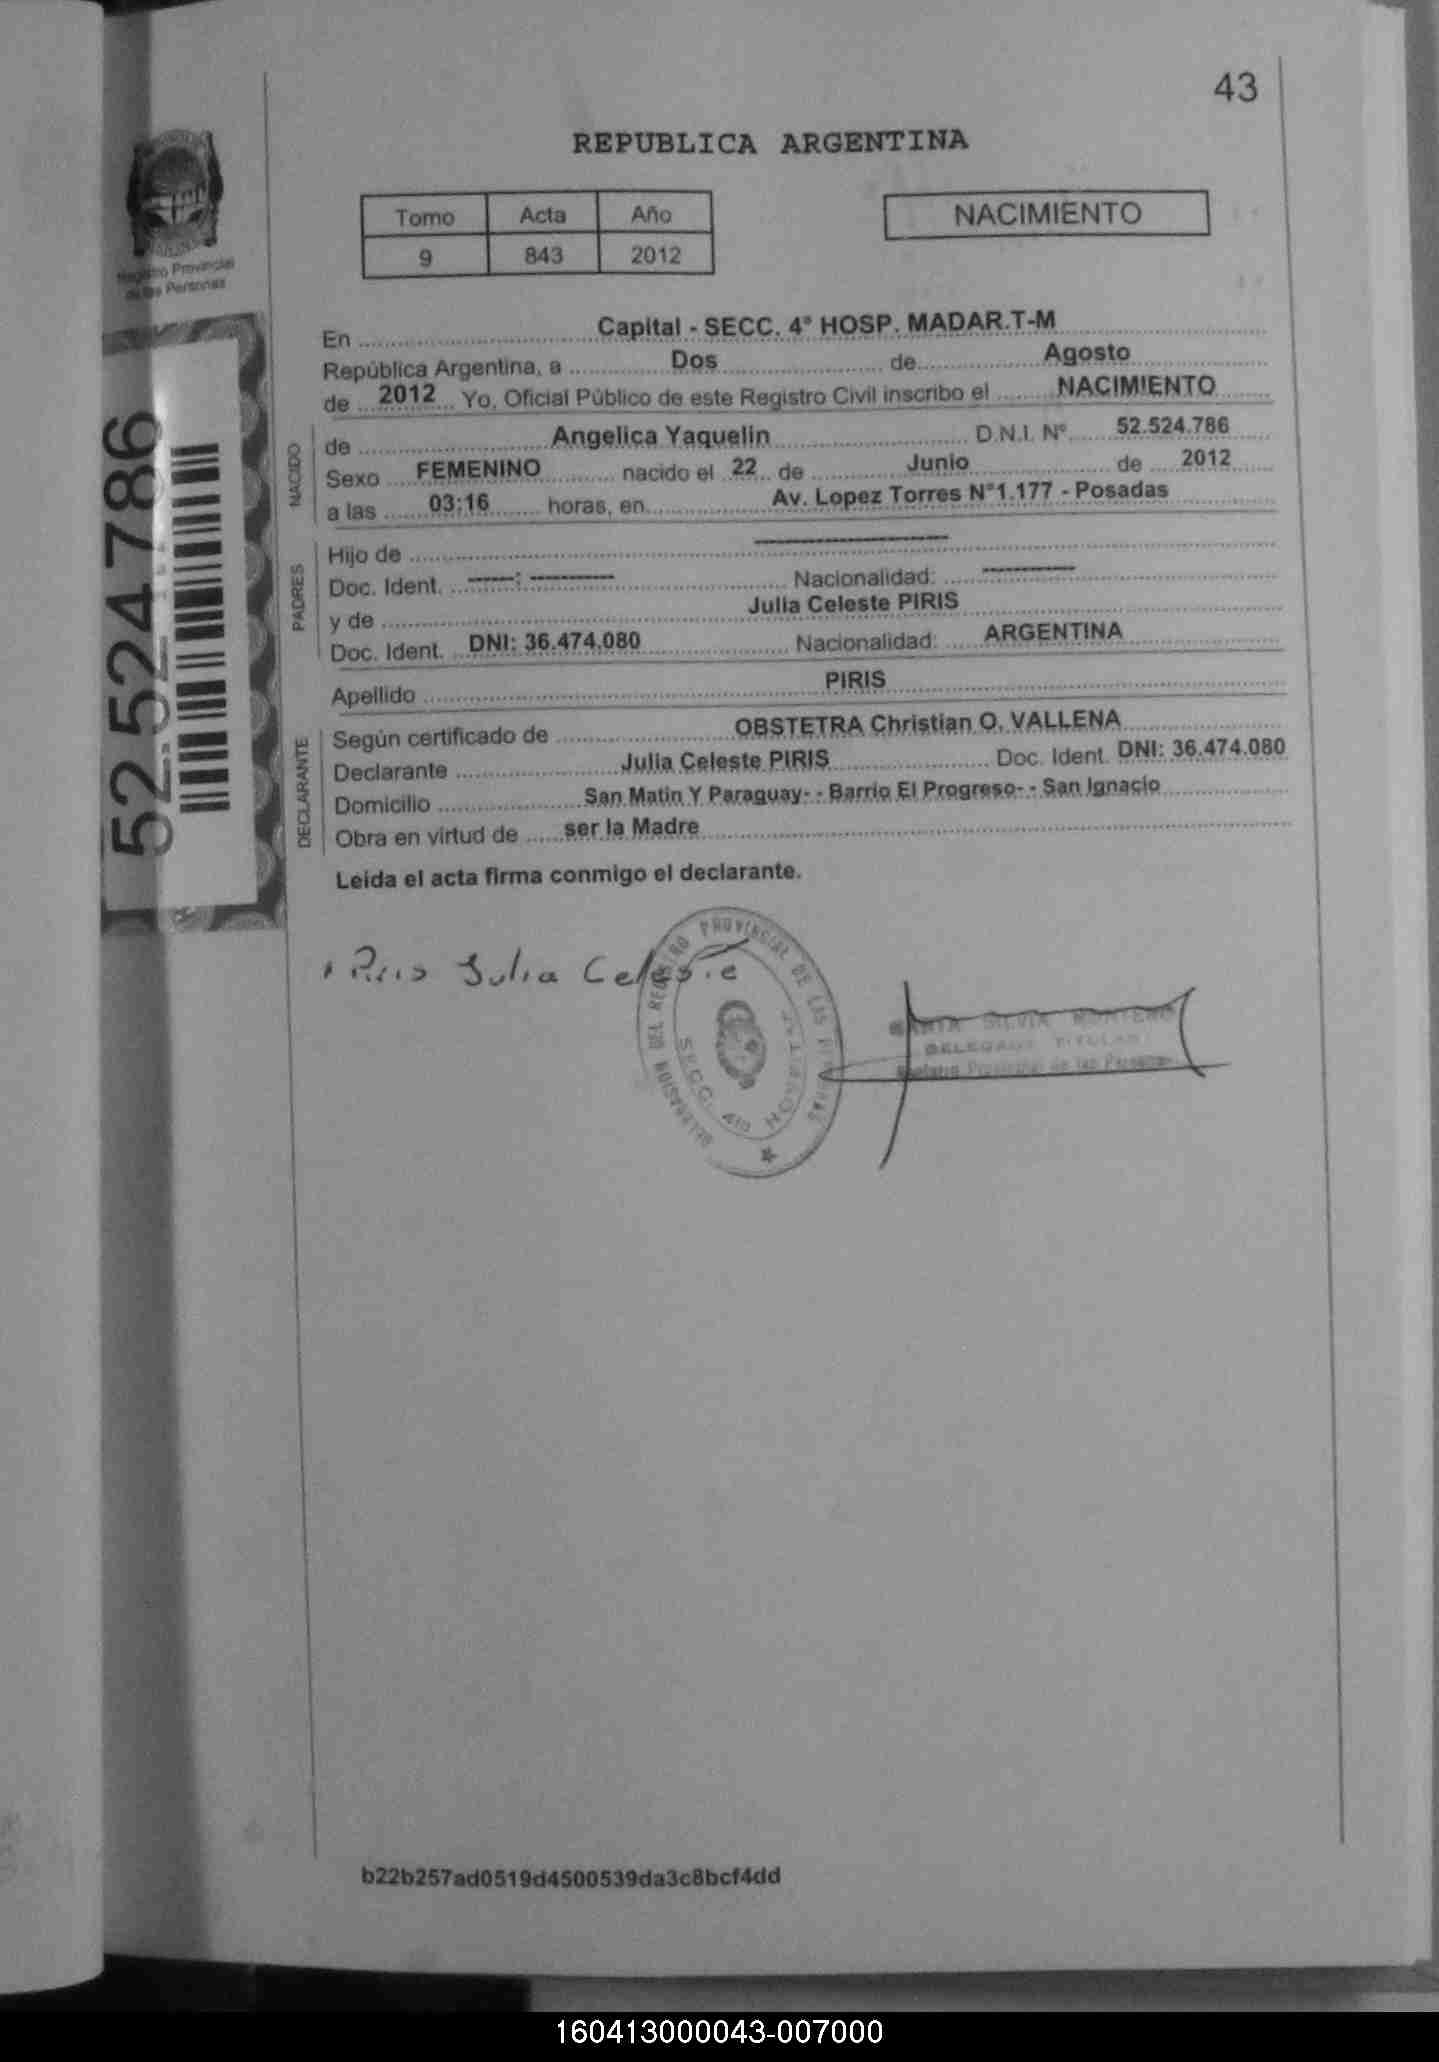 43
REPUBLICA ARGENTINA
Tomo Acta Año
9 843 2012
NACIMIENTO
Registro Provincial
de las Personas
52.524.786
En Capital - SECC. 4ª HOSP. MADAR.T-M
República Argentina, a Dos de Agosto
de 2012 Yo, Oficial Público de este Registro Civil inscribo el NACIMIENTO
NACIDO
de Angelica Yaquelin D.N.I. Nº 52.524.786
Sexo FEMENINO nacido el 22 de Junio de 2012
a las 03:16 horas, en Av. Lopez Torres Nº1.177 - Posadas
PADRES
Hijo de --------------------
Doc. Ident. -----: --------- Nacionalidad: ----------
y de Julia Celeste PIRIS
Doc. Ident. DNI: 36.474.080 Nacionalidad: ARGENTINA
Apellido PIRIS
DECLARANTE
Según certificado de OBSTETRA Christian O. VALLENA
Declarante Julia Celeste PIRIS Doc. Ident. DNI: 36.474.080
Domicilio San Matin Y Paraguay- - Barrio El Progreso- - San Ignacio
Obra en virtud de ser la Madre
Leida el acta firma conmigo el declarante.
Piris Julia Celeste
DELEGACION DEL REGISTRO PROVINCIAL DE LAS PERSONAS
SECC. 4ta HOSPITAL
SILVIA MONTERO
DELEGADA TITULAR
Registro Provincial de las Personas
b22b257ad0519d4500539da3c8bcf4dd
160413000043-007000